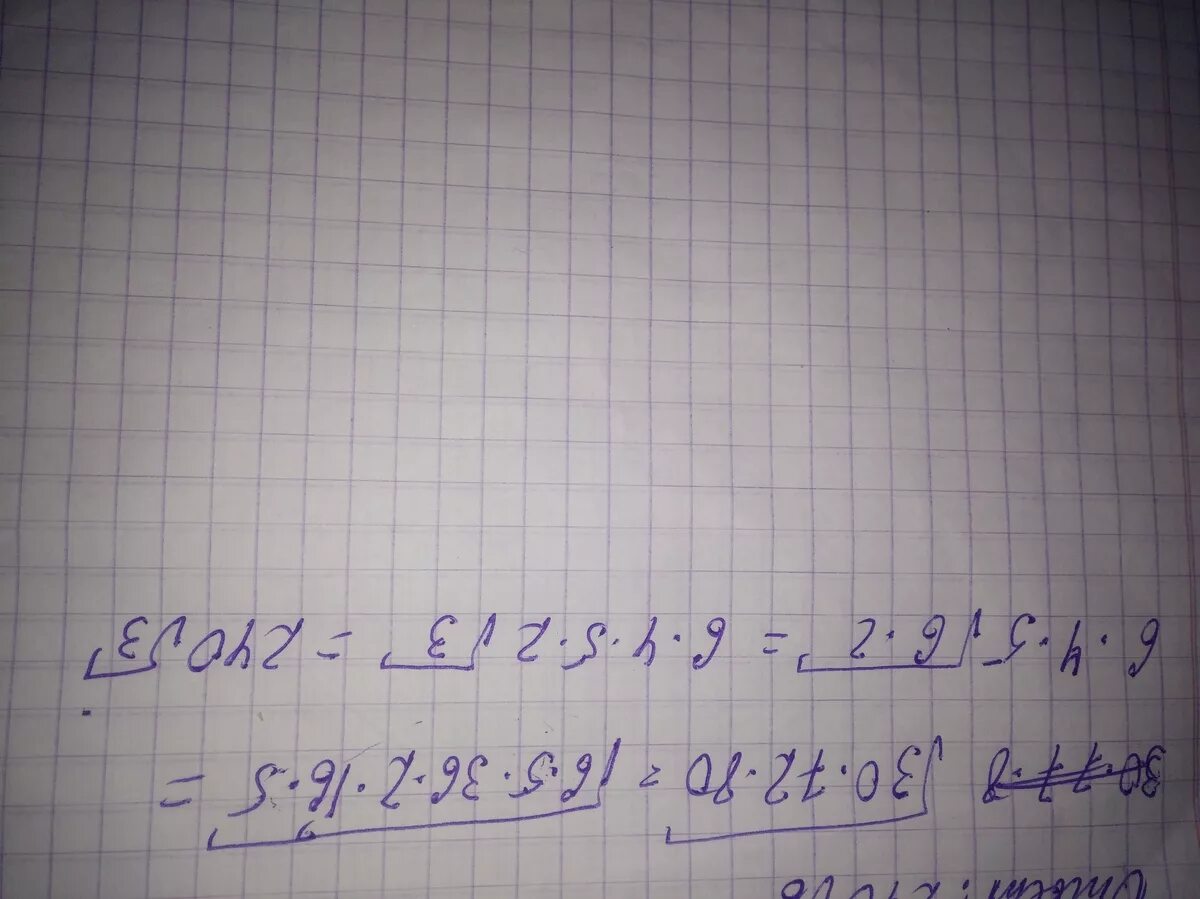 Ответ:
√30·72·80 = √6·5·36·2·16·5 =
6·4·5√6·2 = 6·4·5·2√3 = 240√3